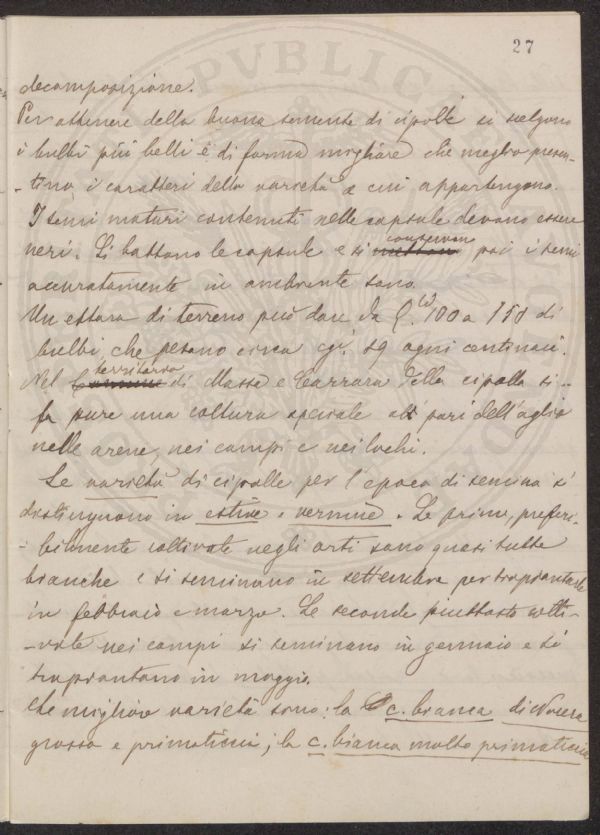 27
decomposizione.
Per ottenere della buona semente di cipolle si scelgono
i bulbi più belli e di forma migliore che meglio presen-
-tino i caratteri della varietà a cui appartengono.
I semi maturi contenuti nelle capsule devono essere
neri. Si battono le capsule e si conservano poi i semi
accuratamente in ambiente sano.
Un ettara di terreno può dare da Q.li 100 a 150 di
bulbi, che pesano circa cgi. 59 ogni centinaio.
Nel territorio di Massa e Carrara della cipolla si
fa pure una coltura speciale al pari dell'aglio
nelle arene, nei campi e nei luchi.
Le varietà di cipolle per l'epoca di semina si
distinguono in estive e vernine. Le prime, preferi-
-bilmente coltivate negli orti sono quasi tutte
bianche e si seminano in settembre per trapiantarle
in febbraio e marzo. Le seconde piuttosto colti-
-vate nei campi si seminano in gennaio e si
trapiantano in maggio.
Le migliori varietà sono: la c. bianca di Nocera
grossa e primaticcia; la c. bianca molto primaticcia
PVBLICA